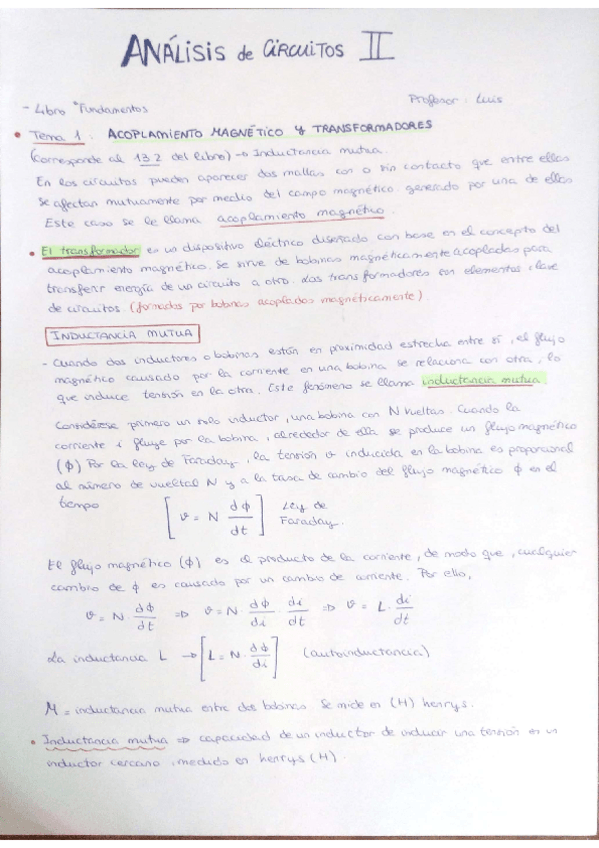 ANÁLISIS de CIRCUITOS II
- Libro "Fundamentos
Profesor: Luis
• Tema 1: ACOPLAMIENTO MAGNÉTICO Y TRANSFORMADORES
(Corresponde al 13.2 del libro) → Inductancia mutua.
En los circuitos pueden aparecer dos mallas con o sin contacto que entre ellas
se afectan mutuamente por medio del campo magnético generado por una de ellas
Este caso se le llama acoplamiento magnético.
• El transformador es un dispositivo eléctrico diseñado con base en el concepto del
acoplamiento magnético. Se sirve de bobinas magnéticamente acopladas para
transferir energía de un circuito a otro. Los transformadores son elementos clave
de circuitos. (formados por bobinas acopladas magnéticamente)
INDUCTANCIA MUTUA
- Cuando dos inductores o bobinas están en proximidad estrecha entre sí, el flujo
magnético causado por la corriente en una bobina se relaciona con otra, lo
que induce tensión en la otra. Este fenómeno se llama inductancia mutua.
Considérese primero un solo inductor, una bobina con N vueltas. Cuando la
corriente i fluye por la bobina, alrededor de ella se produce un flujo magnético
(ϕ) Por la ley de Faraday, la tensión v inducida en la bobina es proporcional
al número de vueltas N y a la tasa de cambio del flujo magnético ϕ en el
tiempo [v = N dϕ/dt] Ley de Faraday.
El flujo magnético (ϕ) es el producto de la corriente, de modo que, cualquier
cambio de ϕ es causado por un cambio de corriente. Por ello,
v = N · dϕ/dt ⇒ v = N · dϕ/di · di/dt ⇒ v = L · di/dt
La inductancia L → [L = N · dϕ/di] (autoinductancia)
M = inductancia mutua entre dos bobinas Se mide en (H) henrys.
• Inductancia mutua ⇒ capacidad de un inductor de inducir una tensión en un
inductor cercano, medido en henrys (H).